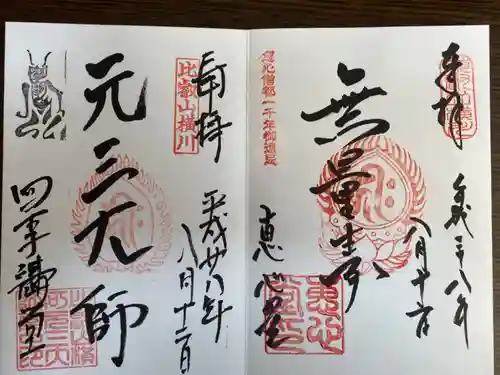 奉拝
平成二十八年
八月十二日
無量寿
恵心堂
恵心僧都一千年御遠忌
奉拝
比叡山横川
平成廿八年
八月十二日
元三大師
四季講堂